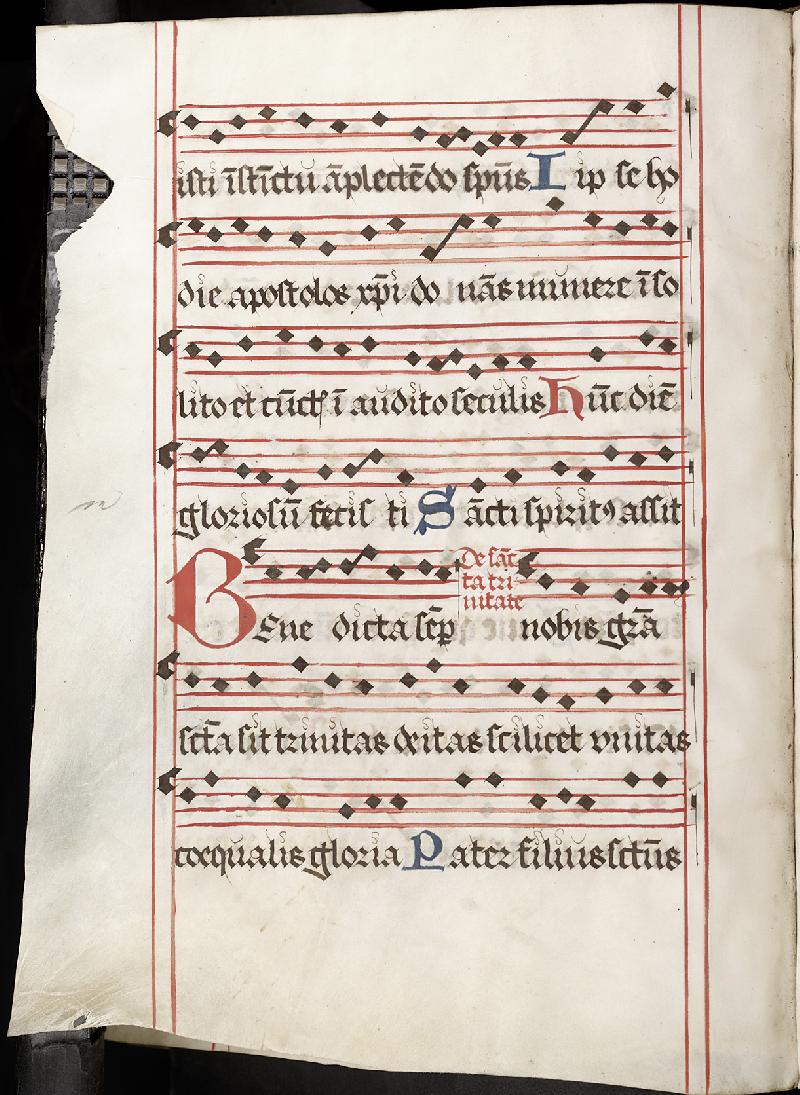 isti īstīctu āplectēdo sp̄us I ip se ho
die apostolos xp̄i do nās munere īso
lito et cūct͛ ī audito seculis hūc diē
gloriosū fecis ti Sācti spiritꝰ assit
BEne dicta sēp De sāc
ta tri
nitate nobis grā
sct̄a sit trinitas deitas scilicet vnitas
coequalis gloria Pater filius sct̄us